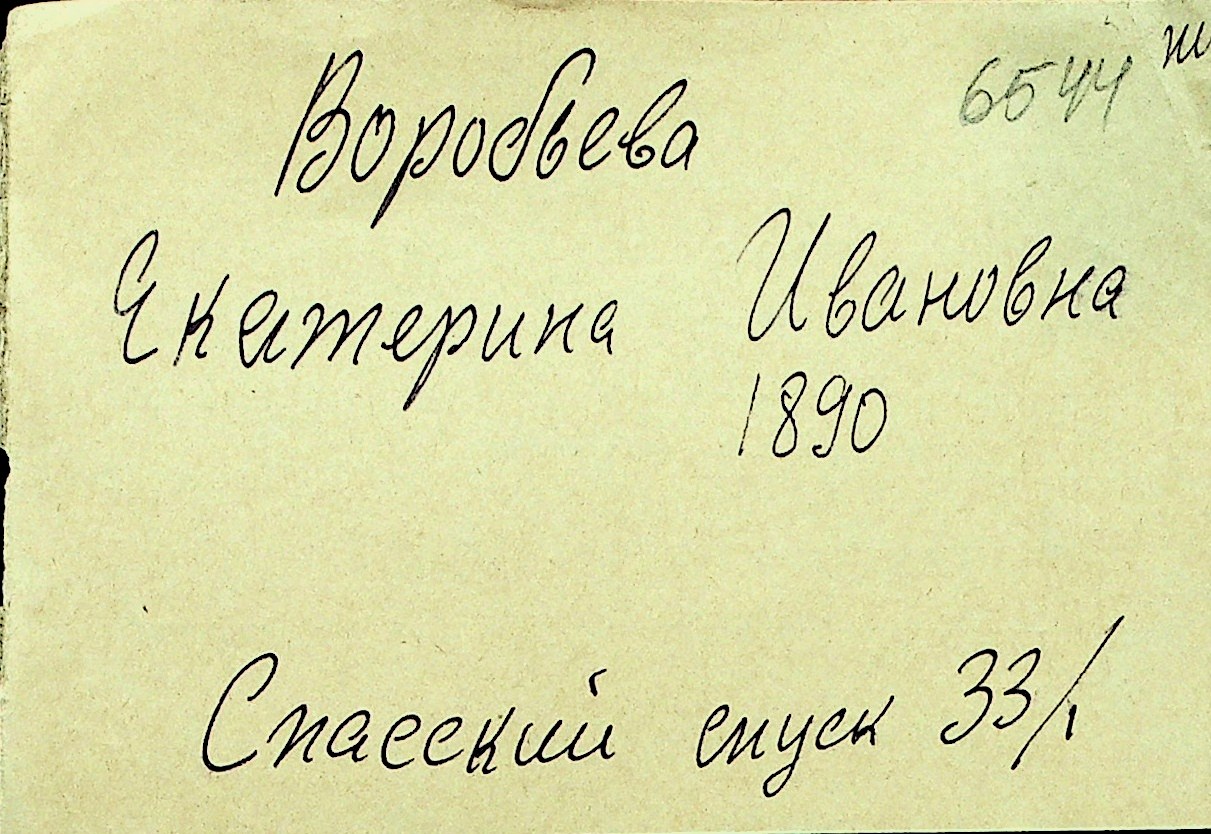 6544
Воробьева
Екатерина Ивановна
1890
Спасский спуск 33/1